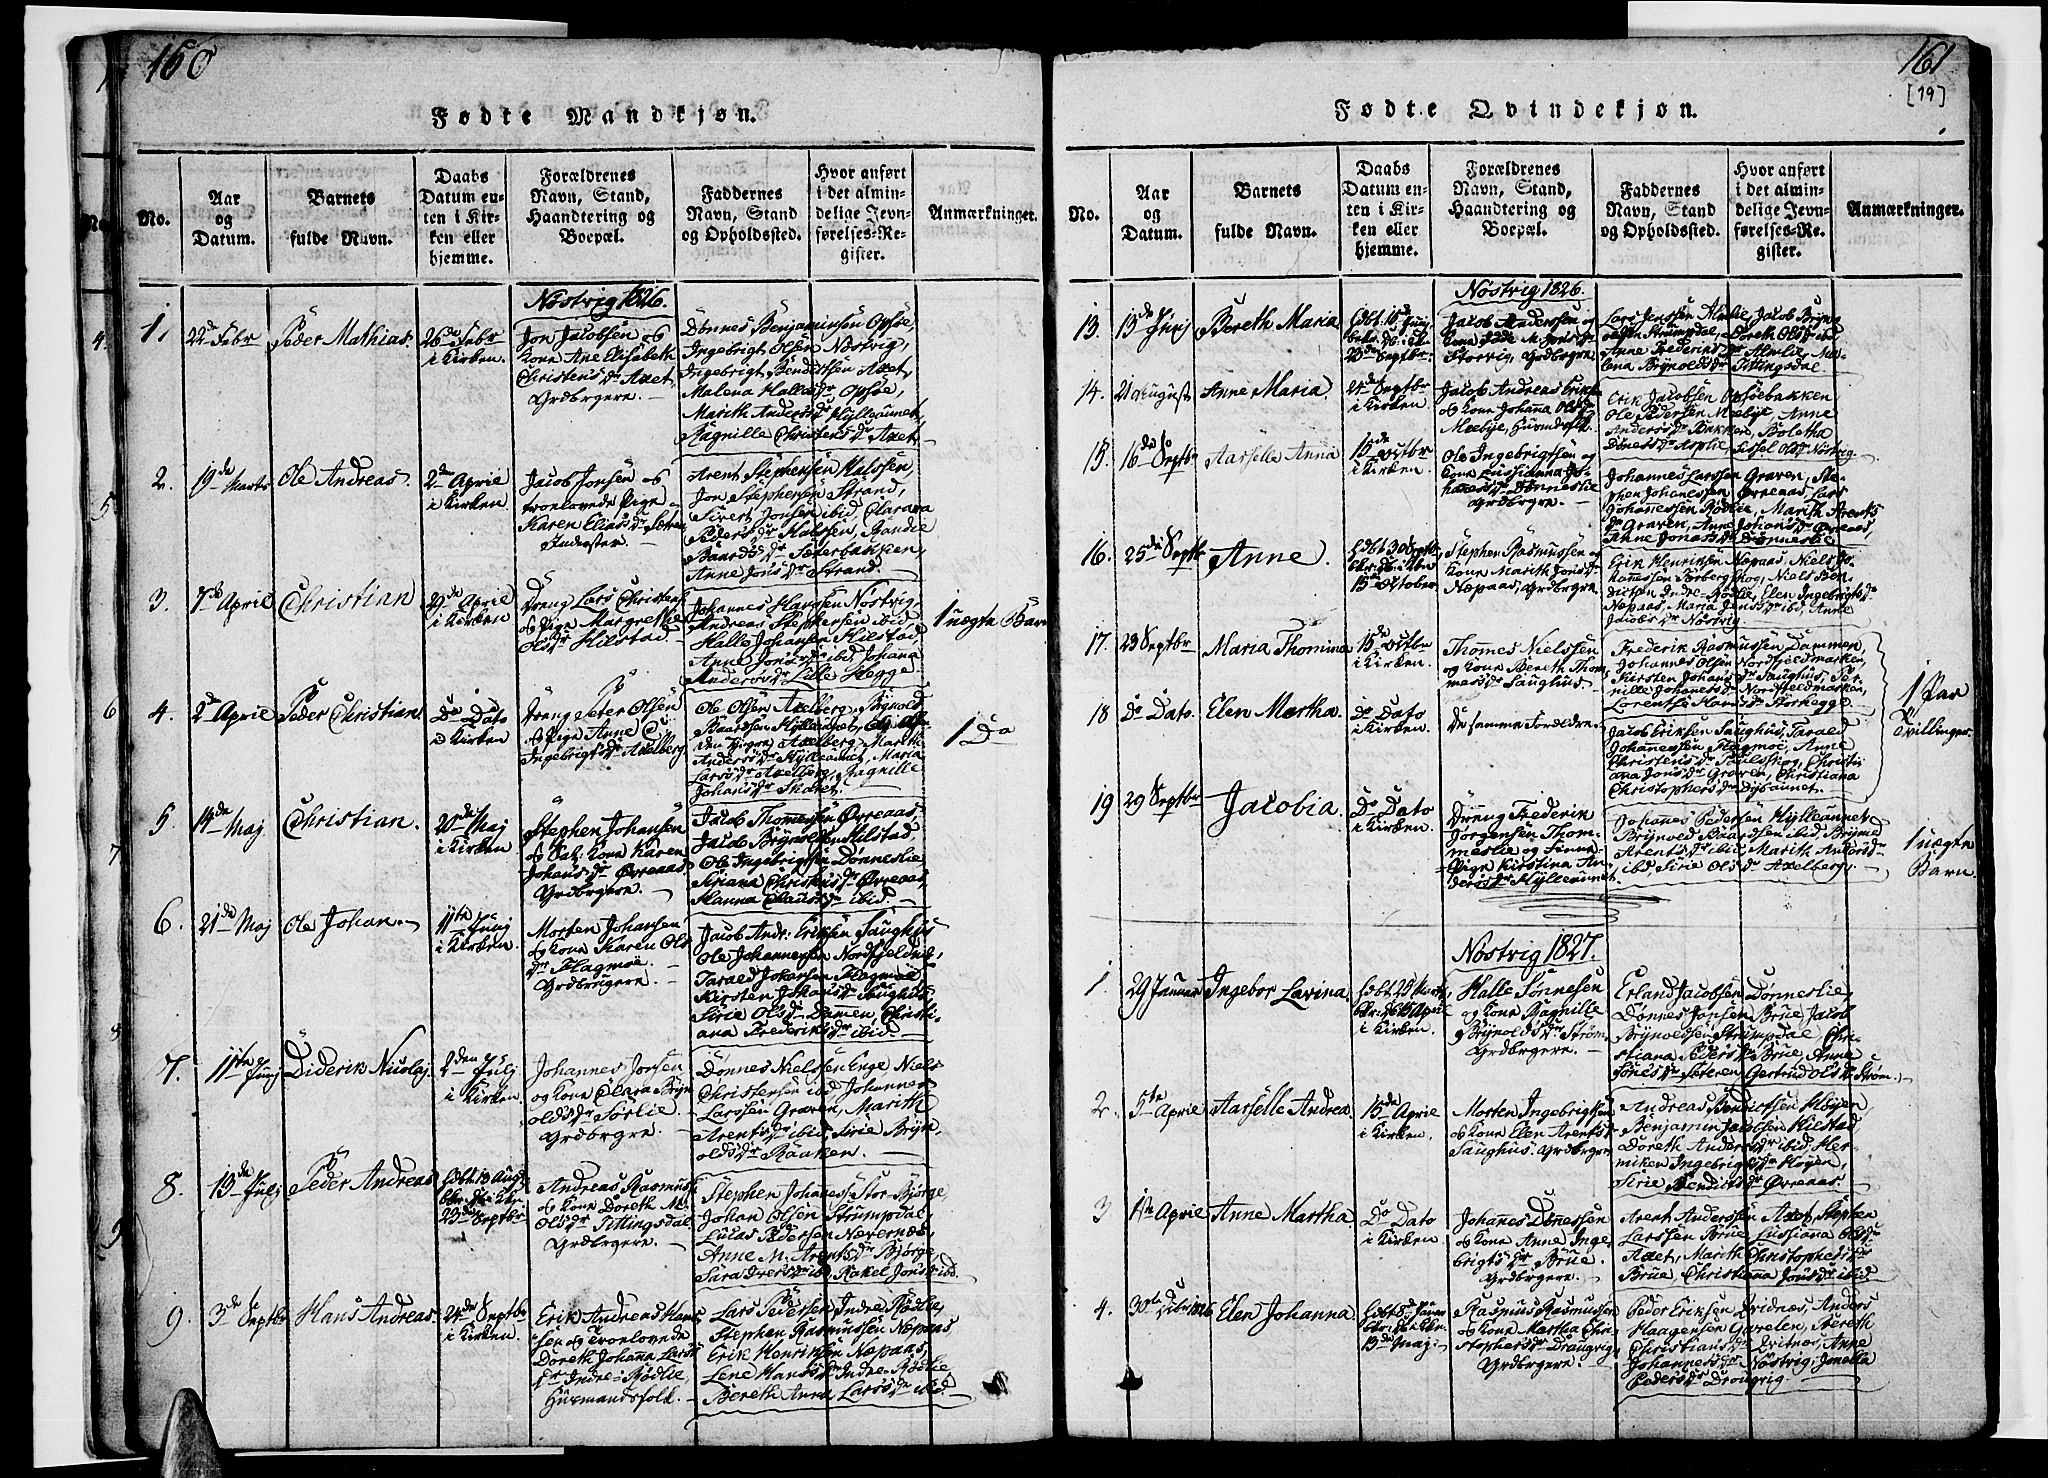 160
Fødte Mandkjøn.
No.
Aar
og
Datum.
Barnets
fulde Navn.
Daabs
Datum en-
ten i Kir-
ken eller
hjemme.
Forældrenes
Navn, Stand,
Haandtering og
Boepæl.
Faddernes
Navn, Stand
og Opholdssted.
Hvor anført
i det almin-
delige Jevn-
førelses-Re-
gister.
Anmærkninger.
Nøstvig 1826.
1.
22de Febr
Peder Mathias.
26de Febr
i Kirken.
Jon Jacobsen og
Kone Ane Elisabeth
Christensdr Axet,
Grdbrgere.
Dønnes Benjaminsen Opsøe,
Ingebrigt Olsen Næstvig,
Ingebrigt Bendixsen Axet,
Malena Hallesdr Opsøe,
Marith Andersdr Hylleaunet,
Ragnille Christensdr Axet.
2.
19de Marts
Ole Andreas.
2den Aprie
i Kirken.
Jacob Jonsen og
trovlovede Pige
Karen Eliasdr Sæter
Inderster.
Arent Stephensen Halssen,
Jon Stephensen Strand,
Sivert Jonsen ibid, Clarava
Pedersdr Halssen, Randie
Baardsdr Sæterbakken,
Anne Jonsdr Strand.
3.
7de Aprie
Christian
29de Aprie
i Kirken
Dreng Lars Christens
og Pige Margrethe
Olsdr Hilstad.
Johannes Hanssen Nøstvig,
Andreas Stephensen ibid
Halle Johansen Hilstad,
Anne Jonsdr ibid, Johana
Andersdr Lille Hegge.
1 uægte Barn
4.
2de Aprie
Peder Christian
Do Dato
i Kirken
Dreng Peter Olsen
og Pige Anne C.
Ingebrigtsdr Axelberg
Ole Olsen Axelberg, Brynold
Baardsen Hylleaunet,
Axelberg, Marith
Andersdr Hylleaunet, Maria
Larsdr Axelberg, Ragnille
Johansdr
1 Do
5.
14de Maj
Christian.
20de Maj
i Kirken
Stephen Johansen
og Kone Karen
Johansdr Øvreaas
Grdbrgere
Jacob Thomesen Øvreaas,
Jacob Brynoldsen Hilstad
Ole Ingebrigtsen Dønneslie
Siriana Christensdr Øvreaas,
Hanna Clausdr ibid.
6.
21de Maj
Ole Johan.
11te Junj
i Kirken.
Morten Johansen
og Kone Karen Ols
dr Flagmoe.
Grdbrugere.
Jacob Andr: Eriksen Saughus
Ole Johannesen Nordfjeldmk,
Taraed Johansen Flagmoe
Kirsten Johansdr Saughus
Sirie Olsdr Damen, Christi-
ana Frederiksdr ibid.
7.
11te Junj
Diderik Nicolaj.
2den Julj
i Kirken.
Johannes Jonsen
og Kone Clara Bryn
oldsdr Sørlie.
Grdbrgre.
Dønnes Nielsen Enge Niels
Christensen ibid, Johannes
Larssen Graven, Marith
Arentsdr ibid, Sirie Bryn,
oldsdr Raaken.
8.
13de Julj
Peder Andreas
hdbt 13 Aug
23de Septbr
Andreas Rasmus
og Kone Doreth M.
Olsdr Tittingsdal.
Grdbrgere.
Stephen Johanes: Stor-Bjørge,
Johan Olsen Strumpdal,
Lucas Pedersen Nævernæs,
Anne M. Arentsdr Bjørge,
Sara Iversdr ibid, Rakel Jonsdr ibd.
9.
3de Septbr
Hans Andreas.
24de Septbr
i Kirken.
Erik Andreas Hans
sen og trovlovede
Doreth Johana Lars
dr Indre-Rødlie,
Huusmandsfolk.
Lars Pedersen Indre Rødlie,
Stephen Rasmussen Næpaas,
Erik Henriksen Næpaas,
Lene Hansdr Indre-Rødlie
Bereth Anna Larsdr ibid.
161
[79]
Fødte Qvindekjøn.
No.
Aar
og
Datum.
Barnets
fulde Navn.
Daabs
Datum en-
ten i Kir-
ken eller
hjemme.
Forældrenes
Navn, Stand,
Haandtering og
Boepæl.
Faddernes
Navn, Stand
og Opholdssted.
Hvor anført
i det almin-
delige Jevn-
førelses-Re-
gister.
Anmærkninger.
Nøstvig 1826.
13.
13de Junj
Bereth Maria
23de Septbr.
Jacob Anderssen og
Kone
Storvig, Grdbrgre
Lars Jenssen Almlie, Jacob Bryn-
oldsen Strumpdal, Doreth Olsdr ibid
Anne Frederiksdr Almlie, Ma-
lena Brynoldsdr Tittingsdal.
14.
21 August
Anne Maria.
24de Septbr
i Kirken.
Jacob Andreas Eriks
og Kone Johana Olsdr
Mæbye, Huusmdsfolk
Erik Jacobsen Opsøebakken
Ole Pedersen Mæbye, Anne
Andersdr Bakken, Boletha
Dønesdr Asplie Sissel Olsdr Nøstvig
15.
16de Septbr
Aarselle Anna
15de Octbr
i Kirken.
Ole Ingebrigtsen og
Kone Lussianna Jo-
hanesdr Dønneslie
Grdbrgre.
Johannes Larssen Graven, Ste-
phen Johanessen Øvreaas, Lars
Johanessen Rødlie, Marith Arents
dr Graven, Anne Johansdr Øvreaas,
Anne Jonasdr Dønneslie
16.
25de Septbr
Anne.
hdbt 30 Septbr,
15de October
Stephen Rasmussen og
Kone Marith Jonsdr
Næpaas, Grdbrgre
Erik Henriksen Næpaas, Niels Jo-
hanessen Torberg skog, Niels Ben-
dictsen Indre-Rødlie, Elen Ingebrigtsdr
Næpaas, Maria Jensdr ibid, Anne
Jacobsdr Nøstvig
17.
23 Septbr
Maria Thomina
15de Octbr
i Kirken.
Thomes Nielssen
og Kone Bereth Thom
mesdr Saughus.
Frederik Rasmussen Dammen,
Johannes Olsen Nordfjeldmarken,
Kirsten Johansdr Saughus, Per-
nille Johanesdr Nordfjeldmarken,
Lorentse Hansdr Storhegge.
1 Par
Tvillinger.
18
Do Dato.
Elen Martha.
Do Dato
i Kirken.
De samme Foreldre.
Jacob Eriksen Saughus, Taraed
Johanessen Flagmoe, Anne
Christensdr Christi
ana Jonsdr Graven, Christiana
Christophersdr
19
29 Septbr
Jacobia.
Do Dato
i Kirken.
Dreng Frederik
Jørgensen Thom-
meslie og
Pige Kirstina An-
dersdr Hylleaunet.
Johanes Pedersen Hylleaunet
Brynold Baardsen ibid, Bryme
Arentsdr ibid, Marith Andersdr
ibd, Sirie Olsdr Axelberg.
1 uægte
Barn.
Nøstvig 1827.
1.
29 Januar
Ingebor Lavina,
i Kirken.
Halle Tønnesen
og Kone Ragnille
Brynoldsdr Strøm
Grdbrgere.
Erland Jacobsen Dønneslie,
Dønnes Jonsen Brue, Jacob
Brynoldsen Strumpdal, Chri-
stiana Pedersdr Brue, Anne
Toresdr Seteren, Gertrud Olsdr Strøm.
2.
5te Aprie
Aarselle Andrea
15de Aprie
i Kirken.
Morten Ingebrigtsen
og Kone Elen Arents
Saughus. Grdbrgere
Andreas Bendictsen Høyen
Benjamin Jacobsen Hilstad,
Doreth Andersdr ibid, Her-
miken Ingebrigtsdr Høyen,
Sirie Bendictsdr Øvreaas.
3
1ste Aprie
Anne Martha.
Do Dato
i Kirken.
Johannes Dønessen
og Kone Anne Inge,
brigtsdr Brue.
Grdbrgere.
Arent Anderssen Axet, Stephen
Larssen Brue, Lussiana Olsdr
Axet, Marith Christophersdr
Brue, Christiana Jonsdr ibid.
4.
1826
Elen Johanna.
13de Maj
Rasmus Rasmussen
og Kone Martha Chri-
stophersdr Draugvig
Grdbrgere.
Peder Eriksen Qvidnæs, Anders
Haagensen Gavelen, Bereth
Christiansdr Qvitnæs, Anne
Johannesdr Nøstvig, Jonetta
Pedersdr Drougvig